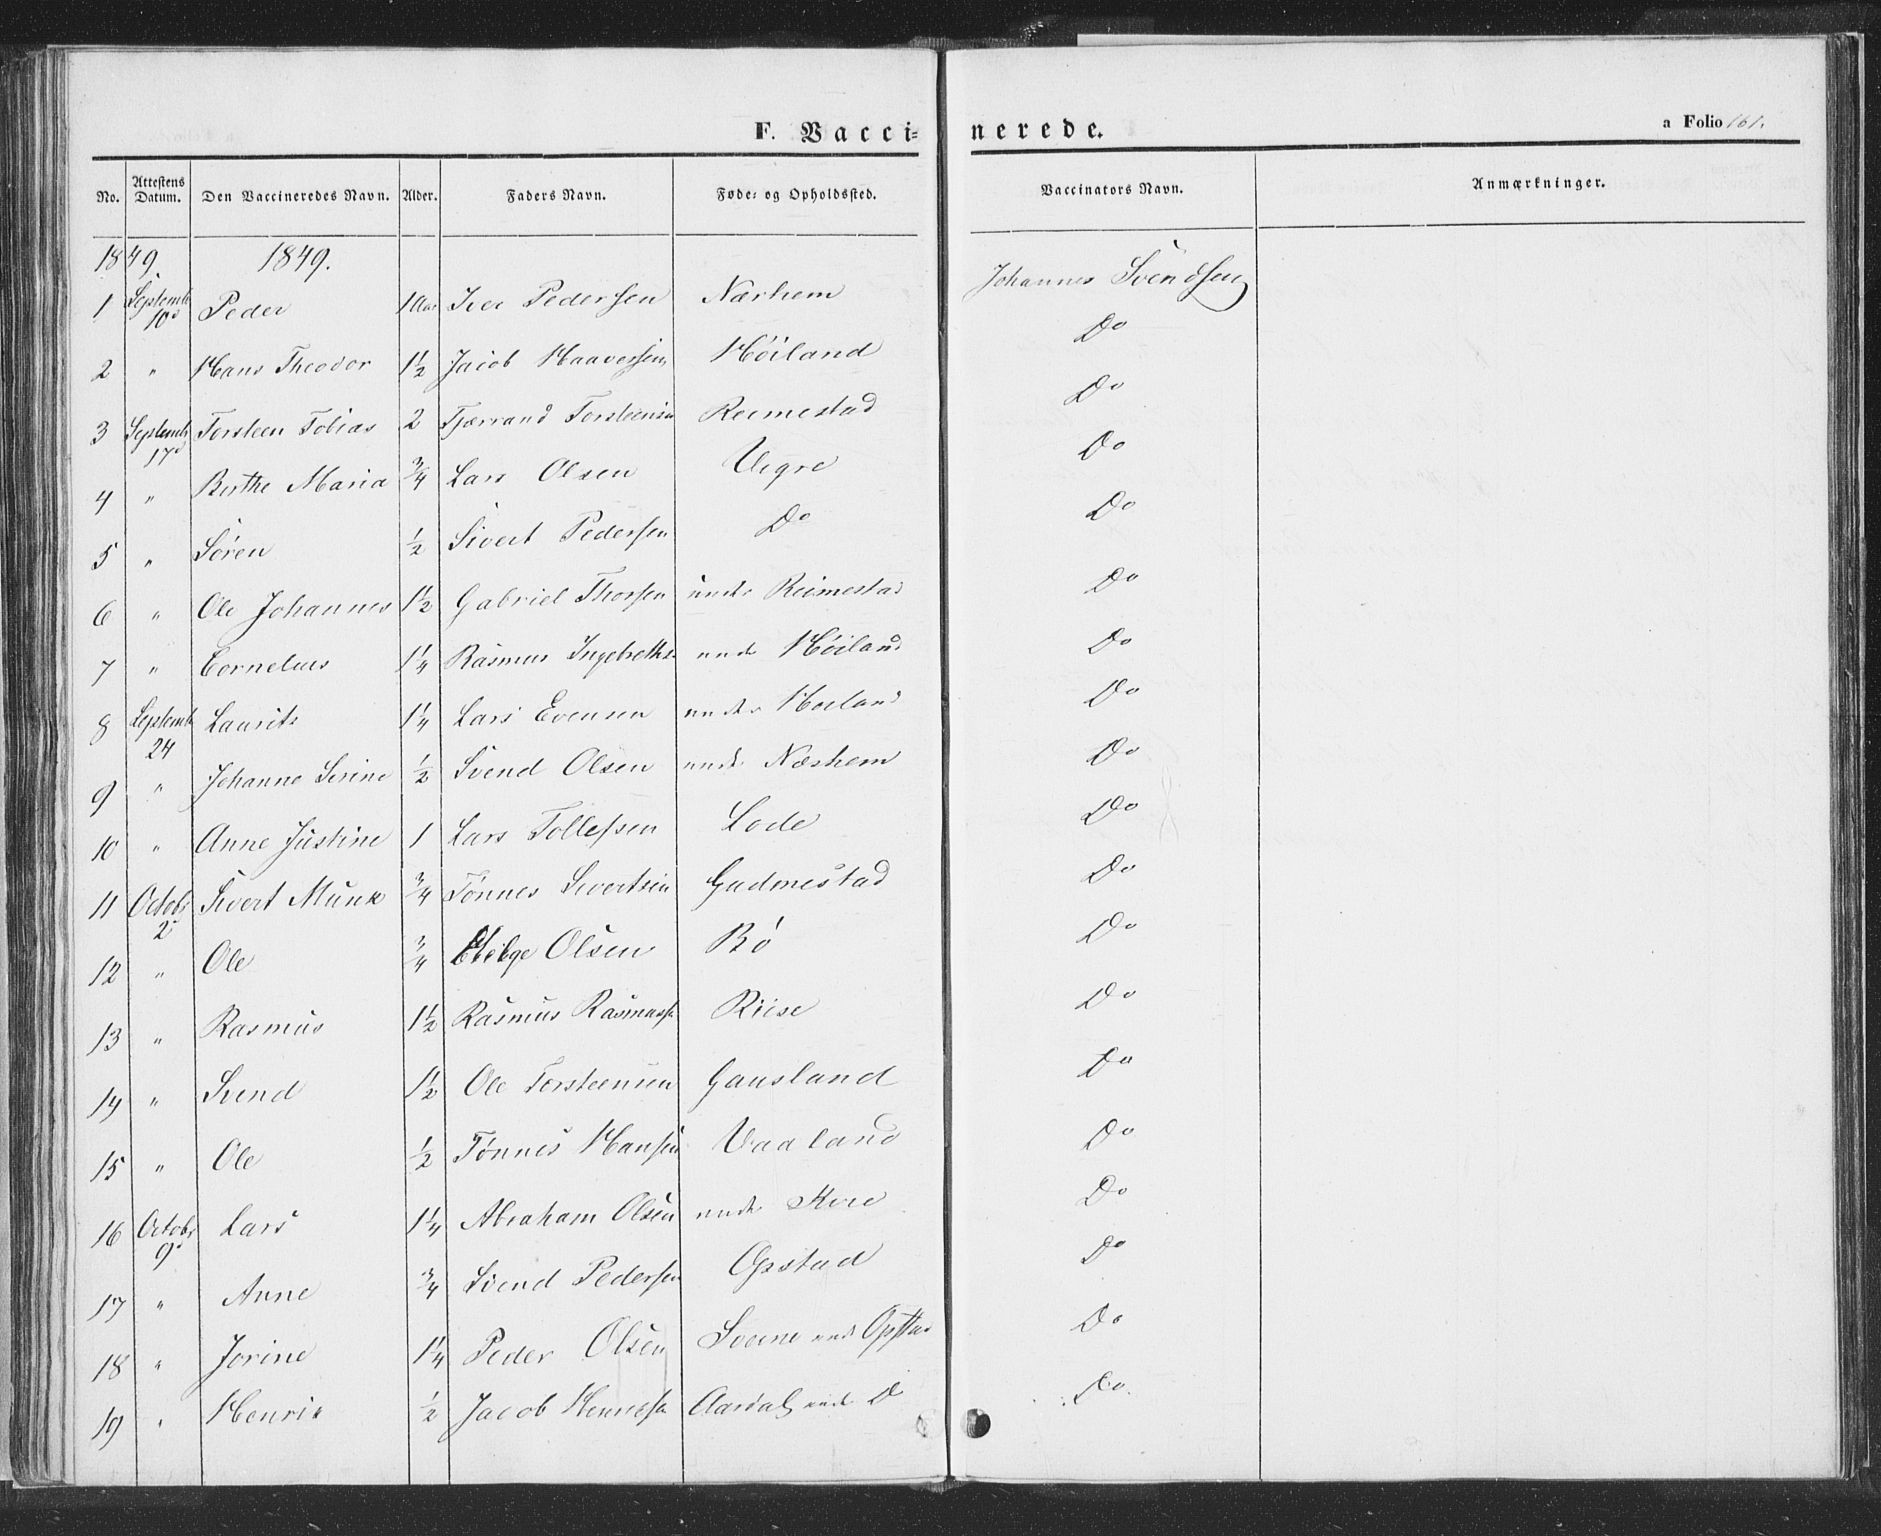 F. Vacci= nerede. a Folio 161.
No. Attestens Datum. Den Vaccineredes Navn. Alder. Faders Navn. Føde= og Opholdssted. Vaccinators Navn. Anmærkninger.
1849 1849.
1 Septemb 10d Peder 1 Aar Iver Pedersen Nærhem Johannes Svendsen
2 " Hans Theodor 1½ Jacob Haaversen Höiland Do
3 Septemb 17d Torsteen Tobias 2 Tjærrand Torsteensen Reimestad Do
4 " Berthe Maria ¾ Lars Olsen Uigre Do
5 " Sören ½ Sivert Pedersen Do Do
6 " Ole Johannes 1½ Gabriel Thorsen under Reimestad Do
7 " Cornelius 1¼ Rasmus Ingebreths. under Höiland Do
8 Septemb 24 Laurits 1¼ Lars Evensen under Hoiland Do
9 " Johanne Serine ½ Svend Olsen under Nærhem Do
10 " Anne Justine 1 Lars Tollefsen Lode Do
11 Octobr 2d Sivert Munk ¾ Tönnes Sivertsen Gudmestad Do
12 " Ole ¾ Olsen Bö Do
13 " Rasmus 1½ Rasmus Rasmuss. Riise Do
14 " Svend 1½ Ole Torsteensen Gausland Do
15 " Ole ½ Tönnes Hansen Vaaland Do
16 Octobr 9d Lars 1¼ Abraham Olsen under Kvie Do
17 " Anne ¾ Svend Pedersen Opstad Do
18 " Jorine 1¼ Peder Olsen under Opstad Do
19 " Henrik ½ Jacob Aardal under D Do